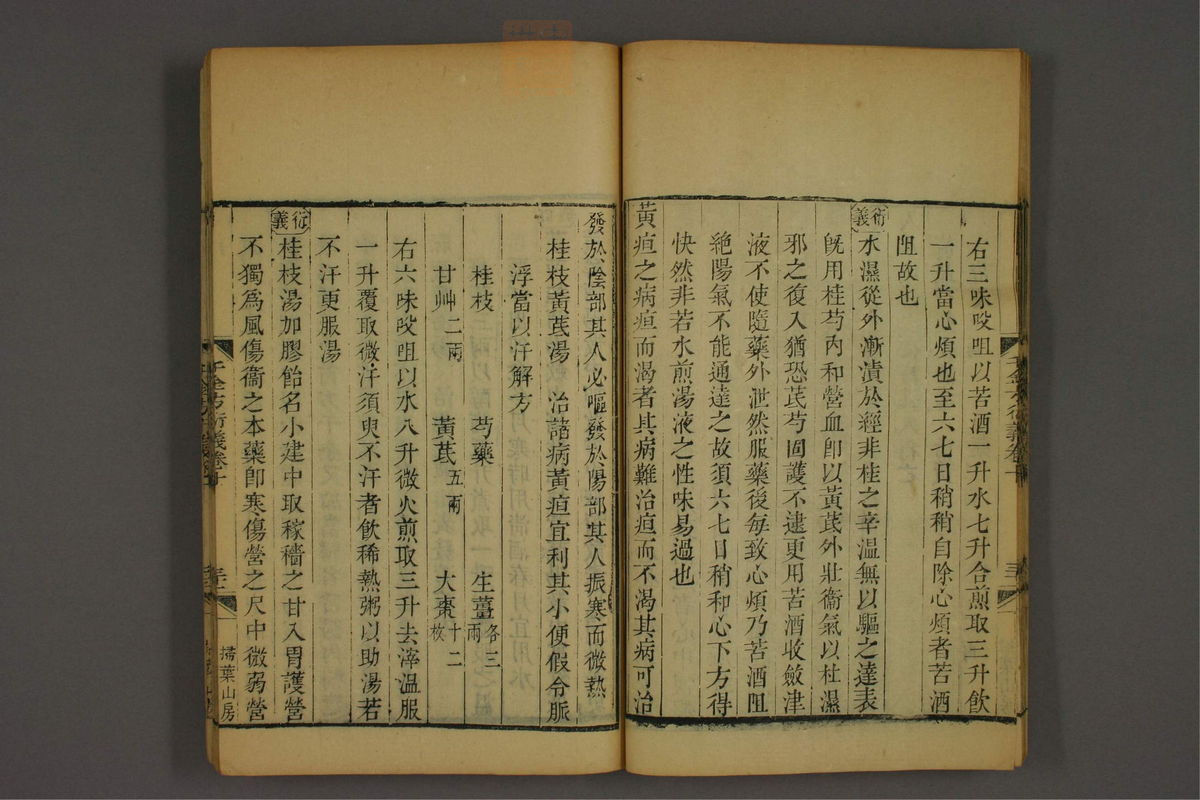 右三味㕮咀以苦酒一升水七升合煎取三升飲
一升當心煩也至六七日稍稍自除心煩者苦酒
阻故也
衍義
水濕從外漸漬於經非桂之辛溫無以驅之達表
旣用桂芍內和營血卽以黃芪外壯衞氣以杜濕
邪之復入猶恐芪芍固護不逮更用苦酒收斂津
液不使隨藥外泄然服藥後每致心煩乃苦酒阻
絕陽氣不能通達之故須六七日稍和心下方得
快然非若水煎湯液之性味易過也
黃疸之病疸而渴者其病難治疸而不渴其病可治
發於陰部其人必嘔發於陽部其人振寒而微熱
桂枝黃芪湯 治諸病黃疸宜利其小便假令脈
浮當以汗解方
桂枝 芍藥 生薑各三兩
甘艸二兩 黃芪五兩 大棗十二枚
右六味㕮咀以水八升微火煎取三升去滓溫服
一升覆取微汗須臾不汗者飲稀熱粥以助湯若
不汗更服湯
衍義
桂枝湯加膠飴名小建中取稼穡之甘入胃護營
不獨爲風傷衞之本藥卽寒傷營之尺中微弱營
千金方衍義卷十
掃葉山房